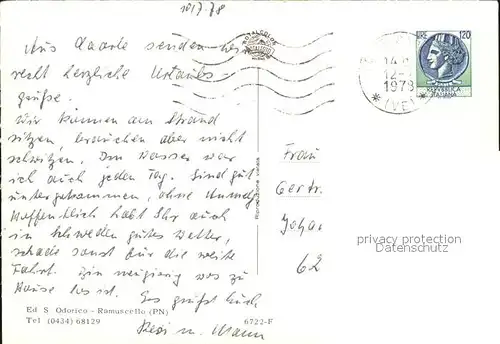 10/7.78
ROTALCOLOR
LIRE 120
14
12-
1978
(VE)
REPVBBLICA
ITALIANA
Aus Caorle senden wir
recht herzliche Urlaubs-
grüße.
Wir können am Strand
sitzen, brauchen aber nicht
schwitzen. Im Wasser war
ich auch jeden Tag. Sind gut
untergekommen, ohne
Hoffentlich habt Ihr auch
in Schweden gutes Wetter,
schade sonst für die weite
Fahrt. Bin neugierig was zu
Hause los ist. Es grüßt Euch
Resi u. Mann
Frau
Gertr.
62
Riproduzione vietata
privacy protection
Datenschutz
Ed S. Odorico - Ramuscello (PN)
Tel (0434) 68129
6722-F